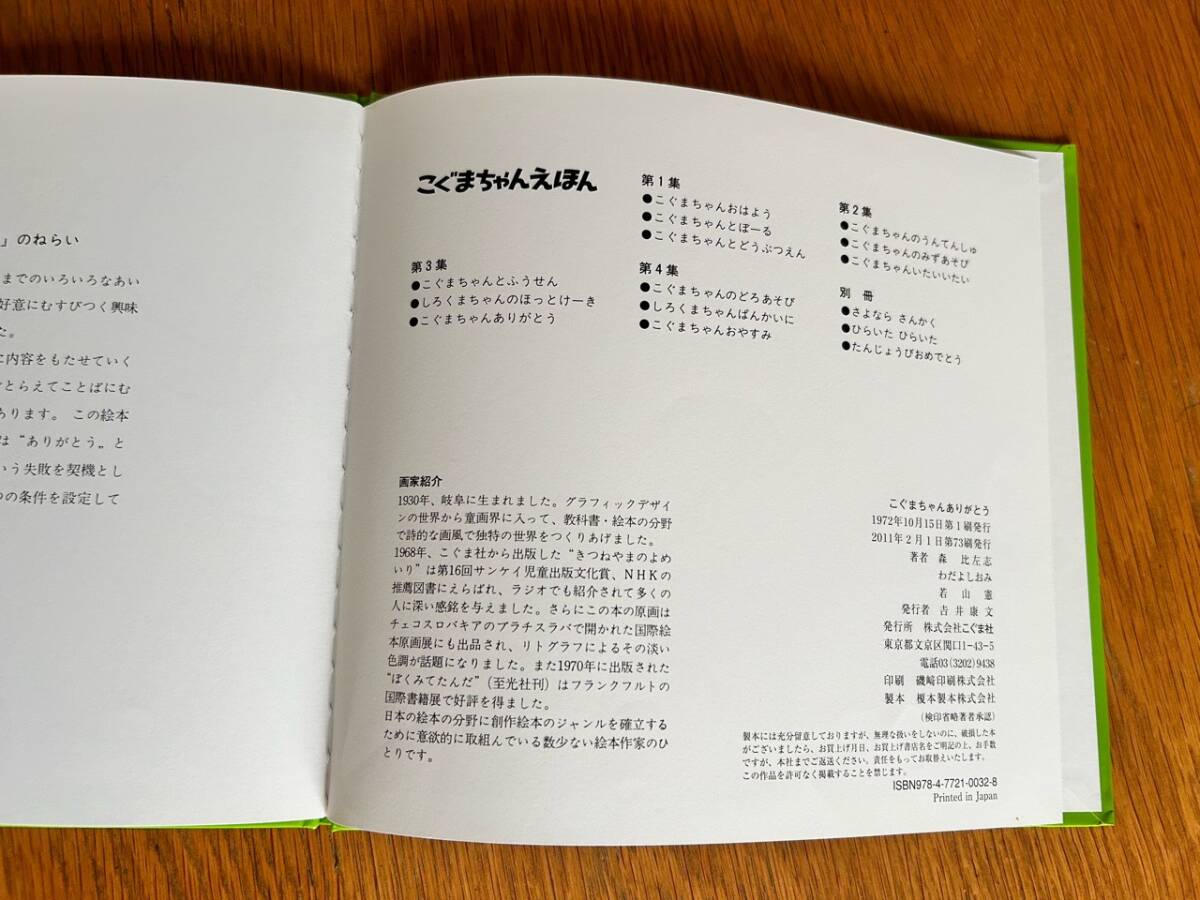 」のねらい
までのいろいろなあい
好意にむすびつく興味
た。
に内容をもたせていく
とらえてことばにむ
あります。 この絵本
は“ありがとう„と
いう失敗を契機とし
の条件を設定して
こぐまちゃんえほん
第1集
●こぐまちゃんおはよう
●こぐまちゃんとぼーる
●こぐまちゃんとどうぶつえん
第2集
●こぐまちゃんのうんてんしゅ
●こぐまちゃんのみずあそび
●こぐまちゃんいたいいたい
第3集
●こぐまちゃんとふうせん
●しろくまちゃんのほっとけーき
●こぐまちゃんありがとう
第4集
●こぐまちゃんのどろあそび
●しろくまちゃんぱんかいに
●こぐまちゃんおやすみ
別 冊
●さよなら さんかく
●ひらいた ひらいた
●たんじょうびおめでとう
画家紹介
1930年、岐阜に生まれました。グラフィックデザイ
ンの世界から童画界に入って、教科書・絵本の分野
で詩的な画風で独特の世界をつくりあげました。
1968年、こぐま社から出版した“きつねやまのよめ
いり”は第16回サンケイ児童出版文化賞、NHKの
推薦図書にえらばれ、ラジオでも紹介されて多くの
人に深い感銘を与えました。さらにこの本の原画は
チェコスロバキアのブラチスラバで開かれた国際絵
本原画展にも出品され、リトグラフによるその淡い
色調が話題になりました。また1970年に出版された
“ぼくみてたんだ”（至光社刊）はフランクフルトの
国際書籍展で好評を得ました。
日本の絵本の分野に創作絵本のジャンルを確立する
ために意欲的に取組んでいる数少ない絵本作家のひ
とりです。
こぐまちゃんありがとう
1972年10月15日第1刷発行
2011年2月1日第73刷発行
著者 森 比左志
わだよしおみ
若山 憲
発行者 吉井康文
発行所 株式会社こぐま社
東京都文京区関口1-43-5
電話03(3202)9438
印刷 磯﨑印刷株式会社
製本 榎本製本株式会社
（検印省略著者承認）
製本には充分留意しておりますが、無理な扱いをしないのに、破損した本
がございましたら、お買上げ月日、お買上げ書店名をご明記の上、お手数
ですが、本社までご返送ください。責任をもってお取替えいたします。
この作品を許可なく掲載することを禁じます。
ISBN978-4-7721-0032-8
Printed in Japan